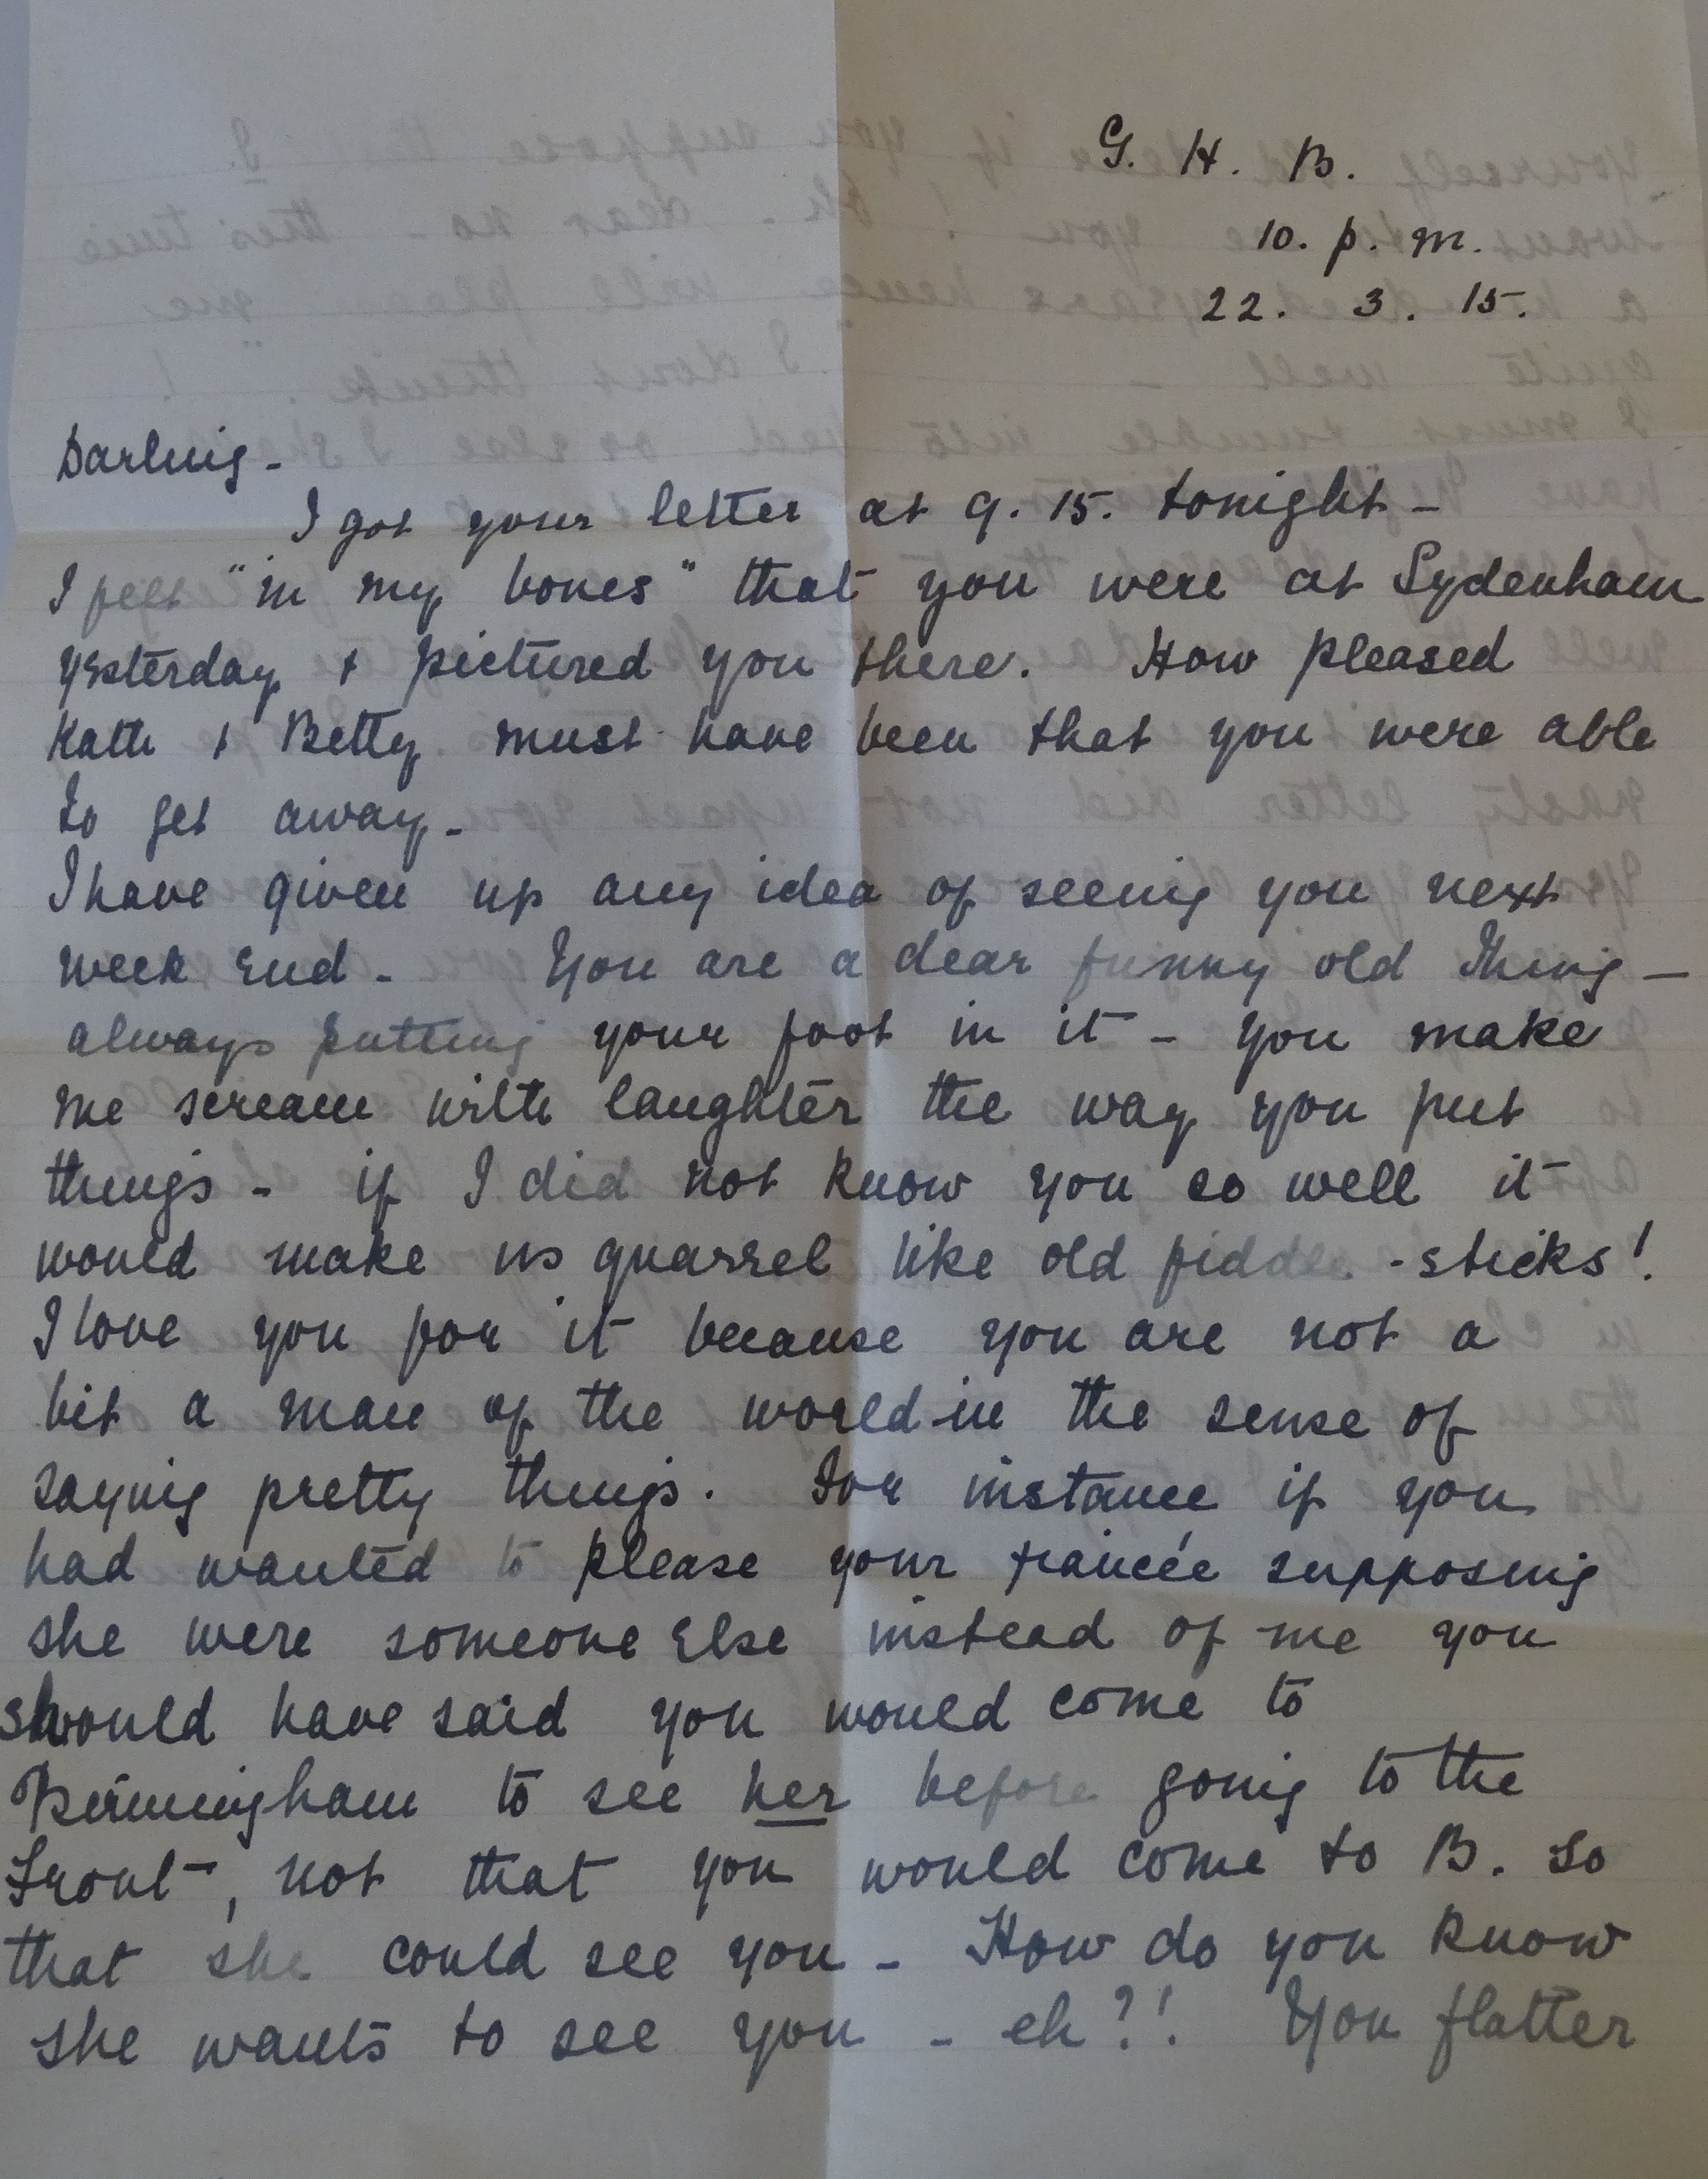 G. H. B.
10. p. m.
22. 3. 15.
Darling -
I got your letter at 9. 15. tonight -
I felt "in my bones" that you were at Sydenham
yesterday & pictured you there. How pleased
Kath & Betty must have been that you were able
to get away -
I have given up any idea of seeing you next
week end - You are a dear funny old Thing -
always putting your foot in it - you make
me scream with laughter the way you put
things - if I did not know you so well it
would make us quarrel like old fiddle-sticks!
I love you for it because you are not a
bit a man of the world in the sense of
saying pretty things. For instance if you
had wanted to please your fiancée supposing
she were someone else instead of me you
should have said you would come to
Birmingham to see her before going to the
Front, not that you would come to B. so
that she could see you - How do you know
she wants to see you - eh?! You flatter